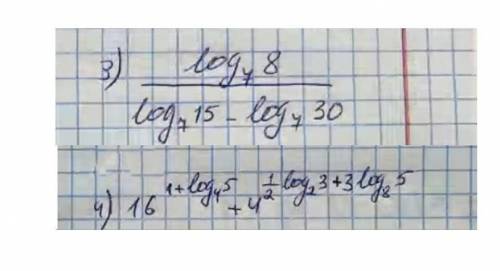 3) log₇ 8 / (log₇ 15 - log₇ 30)
4) 16^(1+log₄5) + 4^(½ log₂3 + 3 log₈5)